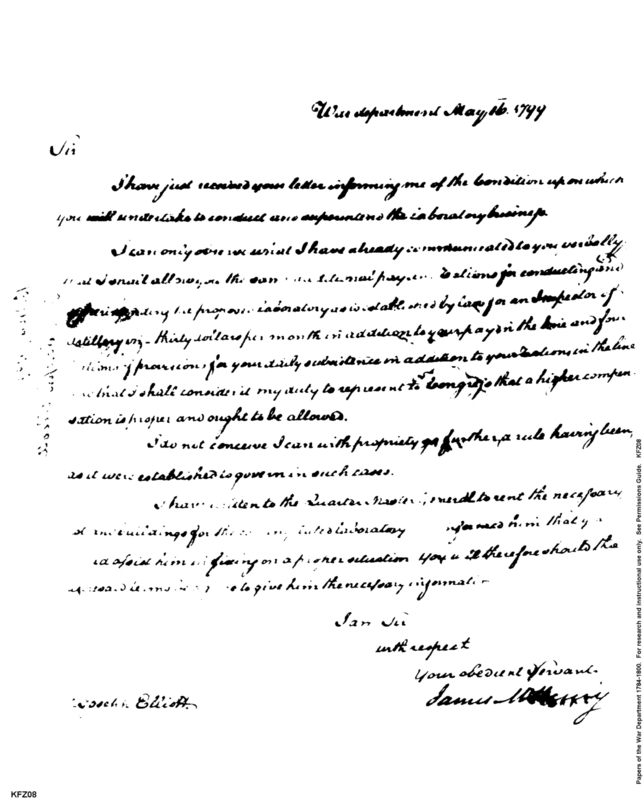 War department May, 16. 1799
Sir
I have just received your letter informing me of the Condition upon which
you will undertake to conduct and superintend the laboratory business.
I can only what I have already communicated to you verbally
that I shall allow you the same additional pay and Rations for conducting and
superintending the proposed laboratory as is established by law for an Inspector of
Artillery viz - thirty dollars per month in addition to your pay in the line and four
rations of provisions for your daily subsistence in addition to your Rations in the line
and that I shall consider it my duty to represent to Congress that a higher compen-
sation is proper and ought to be allowed.
I do not conceive I can with propriety go further, a rule having been,
as it were established to govern in such cases.
I have written to the Quarter Master General to rent the necessary
buildings for the laboratory informed him that
assist him in fixing on a proper situation You will therefore should the
to give him the necessary information
I am Sir
with respect
your obedient Servant.
James McHenry
Elliott.
KFZ08
Papers of the War Department 1784-1800. For research and instructional use only. See Permissions Guide. KFZ08